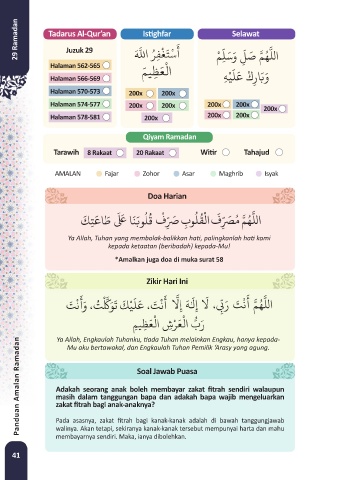 29 Ramadan
Tadarus Al-Qur'an
Istighfar
Selawat
Juzuk 29
Halaman 562-565
Halaman 566-569
Halaman 570-573
Halaman 574-577
Halaman 578-581
أَسْتَغْفِرُ اللَّهَ
الْعَظِيمَ
200x 200x
200x 200x
200x
اللَّهُمَّ صَلِّ وَسَلِّمْ
وَبَارِكْ عَلَيْهِ
200x 200x
200x
200x 200x
Qiyam Ramadan
Tarawih 8 Rakaat 20 Rakaat Witir Tahajud
AMALAN Fajar Zohor Asar Maghrib Isyak
Doa Harian
اللَّهُمَّ مُصَرِّفَ الْقُلُوبِ صَرِّفْ قُلُوبَنَا عَلَى طَاعَتِكَ
Ya Allah, Tuhan yang membolak-balikkan hati, palingkanlah hati kami
kepada ketaatan (beribadah) kepada-Mu!
*Amalkan juga doa di muka surat 58
Zikir Hari Ini
اللَّهُمَّ أَنْتَ رَبِّي، لَا إِلَهَ إِلَّا أَنْتَ، عَلَيْكَ تَوَكَّلْتُ، وَأَنْتَ
رَبُّ الْعَرْشِ الْعَظِيمِ
Ya Allah, Engkaulah Tuhanku, tiada Tuhan melainkan Engkau, hanya kepada-
Mu aku bertawakal, dan Engkaulah Tuhan Pemilik 'Arasy yang agung.
Soal Jawab Puasa
Adakah seorang anak boleh membayar zakat fitrah sendiri walaupun
masih dalam tanggungan bapa dan adakah bapa wajib mengeluarkan
zakat fitrah bagi anak-anaknya?
Pada asasnya, zakat fitrah bagi kanak-kanak adalah di bawah tanggungjawab
walinya. Akan tetapi, sekiranya kanak-kanak tersebut mempunyai harta dan mahu
membayarnya sendiri. Maka, ianya dibolehkan.
Panduan Amalan Ramadan
41